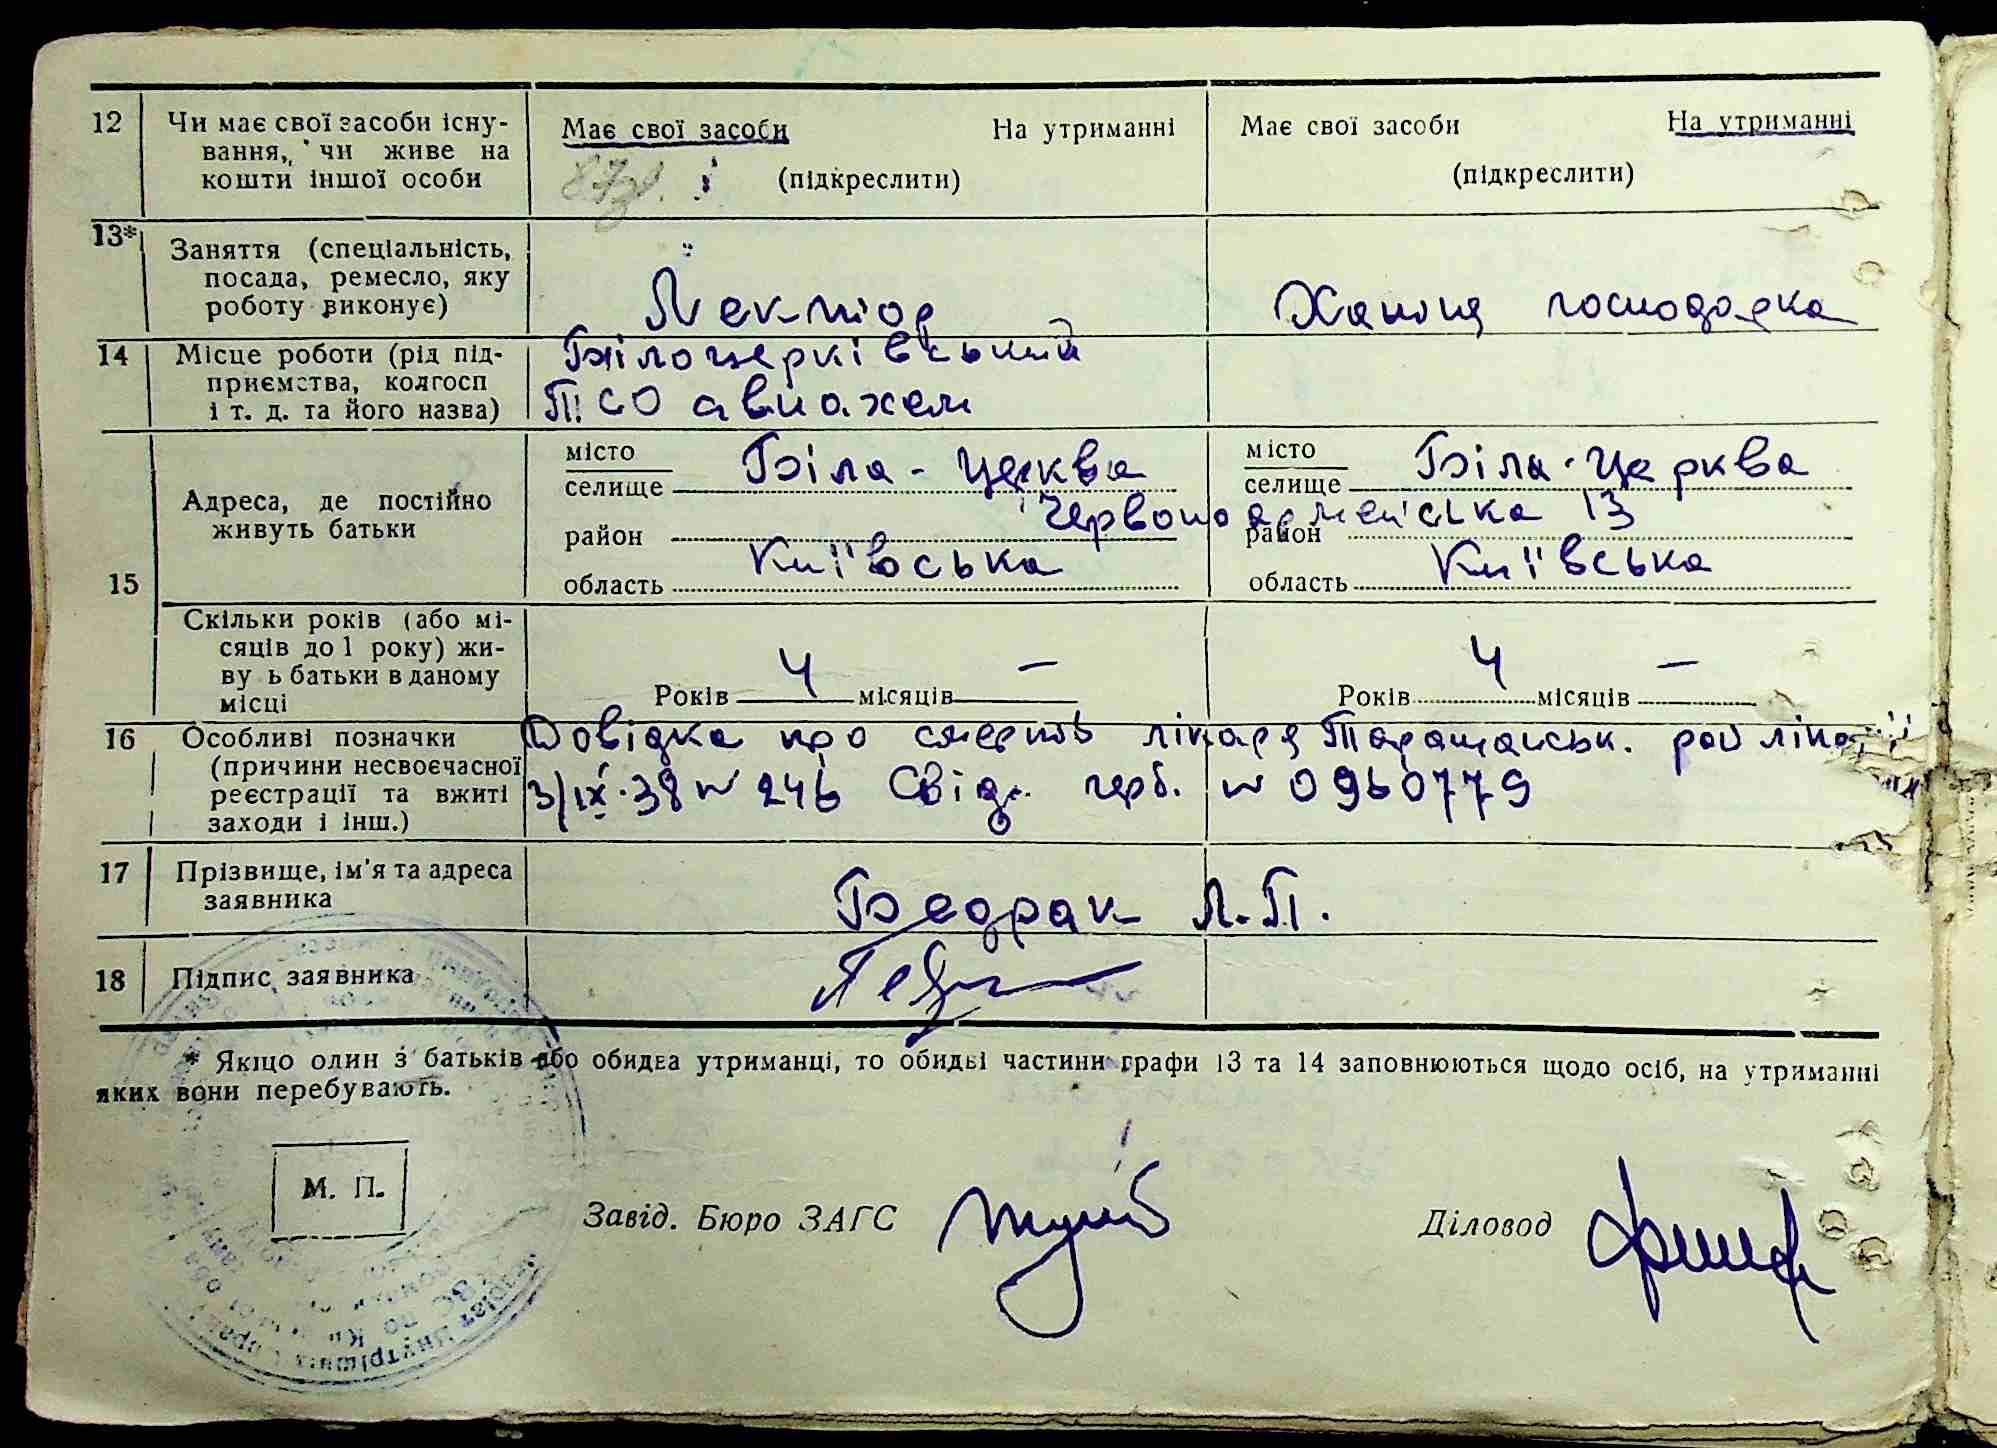 12 Чи має свої засоби існу- Має свої засоби На утриманні Має свої засоби На утриманні
вання, чи живе на
кошти іншої особи (підкреслити) (підкреслити)
13* Заняття (спеціальність,
посада, ремесло, яку
роботу виконує) Лектор Хатня господарка
14 Місце роботи (рід під- Білоцерківський
приємства, колгосп
і т. д. та його назва) ПСО авиахем
15 Адреса, де постійно
живуть батьки
місто Біла-Церква місто Біла-Церква
селище селище
Червоноармейська 13
район район
область Київська область Київська
Скільки років (або мі-
сяців до 1 року) жи-
ву ь батьки в даному
місці Років 4 місяців — Років 4 місяців —
16 Особливі позначки Довідка про смерть лікаря Таращанськ. рай
(причини несвоєчасної
реєстрації та вжиті 3/IX-38 № 246 Свід. герб. № 0960779
заходи і інш.)
17 Прізвище, ім'я та адреса
заявника Бедрак Л.П.
18 Підпис заявника
* Якщо один з батьків або обидва утриманці, то обидві частини графи 13 та 14 заповнюються щодо осіб, на утриманні
яких вони перебувають.
М. П.
Завід. Бюро ЗАГС Діловод